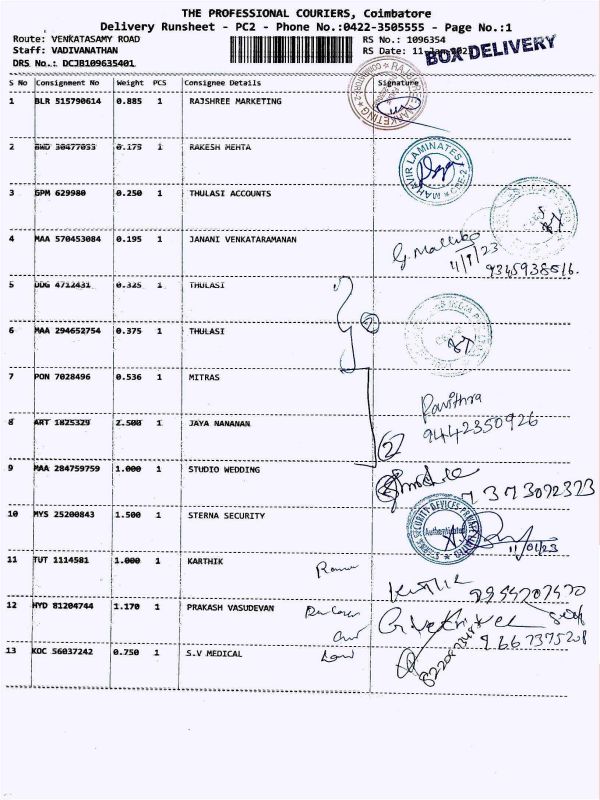 THE PROFESSIONAL COURIERS, Coimbatore
Delivery Runsheet - PC2 - Phone No.:0422-3505555 - Page No.:1
Route: VENKATASAMY ROAD RS No.: 1096354
Staff: VADIVANATHAN RS Date: 11-Jan-202
DRS No.: DCJB109635401
BOX DELIVERY
S No Consignment No Weight PCS Consignee Details Signature
1 BLR 515790614 0.885 1 RAJSHREE MARKETING
RAJSHREE MARKETING COIMBATORE-2
2 BWD 30477033 0.175 1 RAKESH MEHTA
MAHAVIR LAMINATES CBE-2
3 GPM 629980 0.250 1 THULASI ACCOUNTS
4 MAA 570453084 0.195 1 JANANI VENKATARAMANAN
G. Mallika
11/1/23
9345938516.
5 DDG 4712431 0.325 1 THULASI
6 MAA 294652754 0.375 1 THULASI
2
7 PON 7028496 0.536 1 MITRAS
Pavithra
9442350926
8 ART 1825329 2.500 1 JAYA NANANAN
2
9 MAA 284759759 1.000 1 STUDIO WEDDING
7373092323
10 MYS 25200843 1.500 1 STERNA SECURITY
STERNA SECURITY DEVICES PRIVATE LIMITED
Authenticated
11/01/23
11 TUT 1114581 1.000 1 KARTHIK
12 HYD 81204744 1.170 1 PRAKASH VASUDEVAN
13 KOC 56037242 0.750 1 S.V MEDICAL